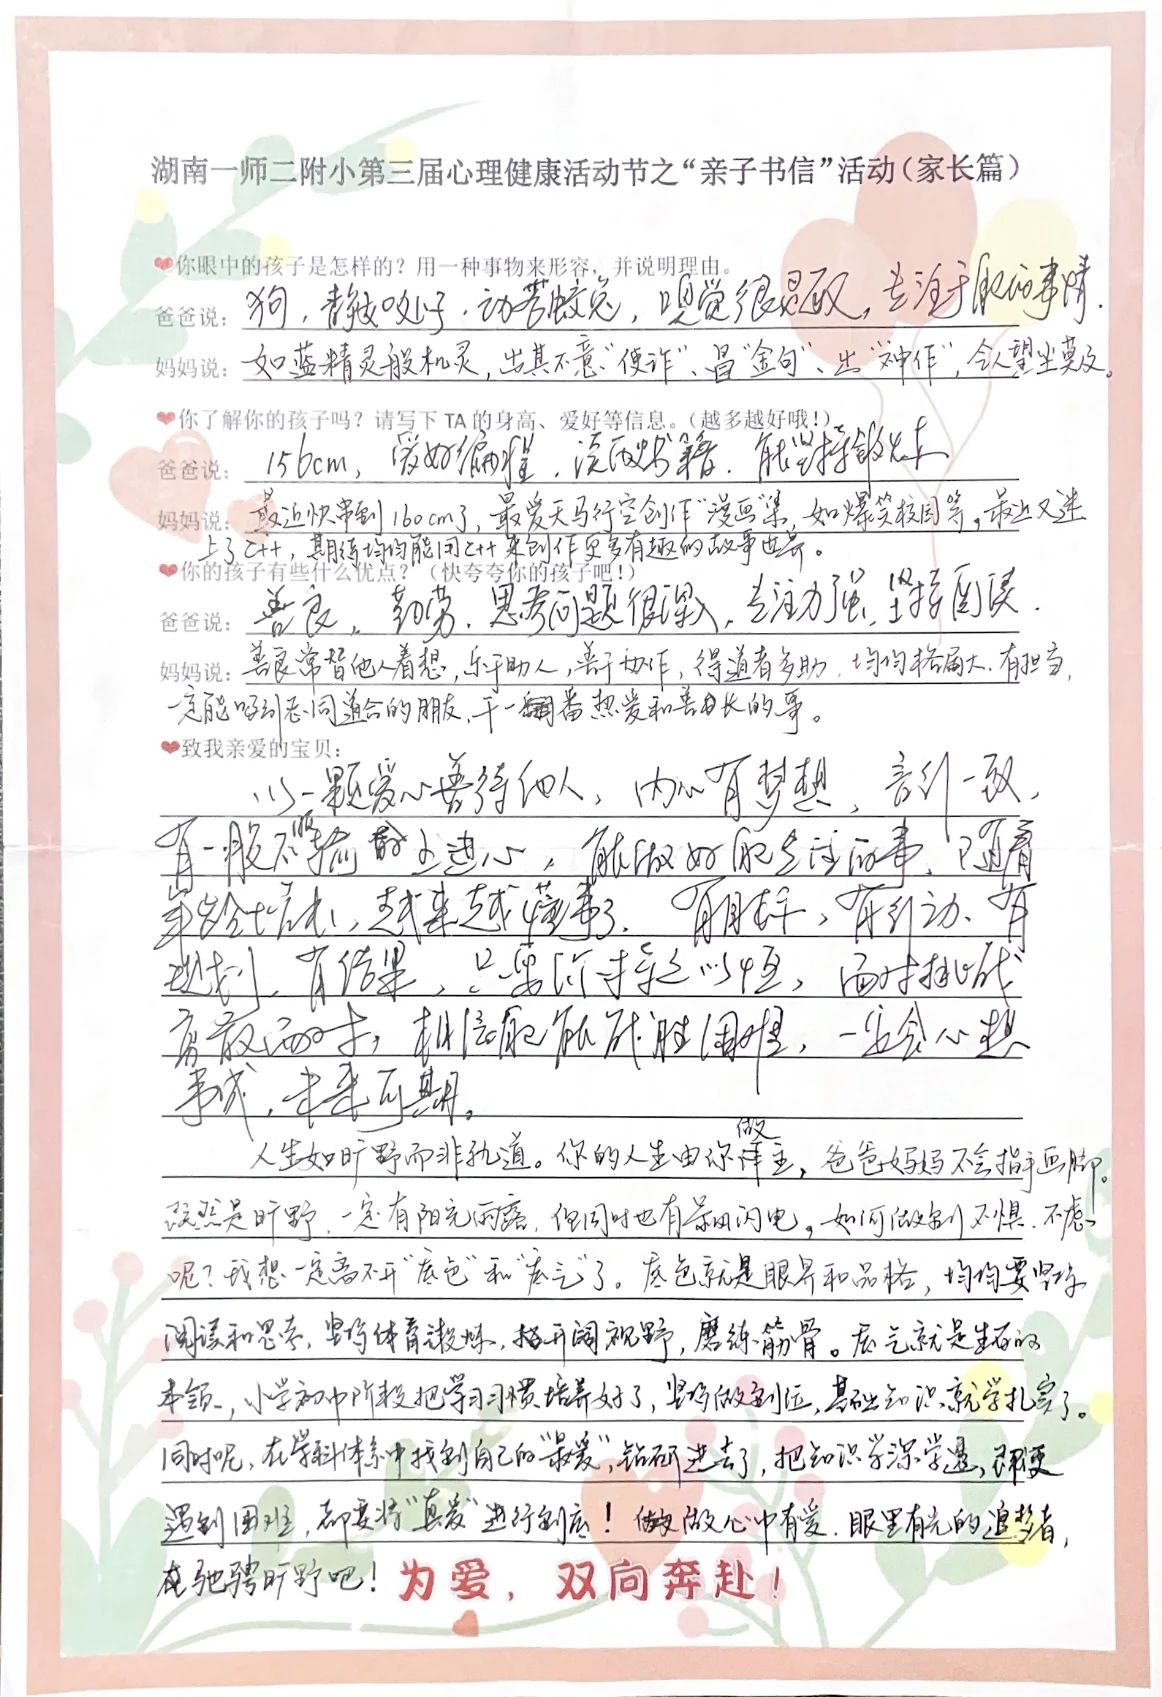 湖南一师二附小第三届心理健康活动节之“亲子书信”活动（家长篇）
❤你眼中的孩子是怎样的？用一种事物来形容，并说明理由。
爸爸说：狗，静若处子，动若脱兔，嗅觉很灵敏，专注于的事情.
妈妈说：如蓝精灵般机灵，出其不意“使诈”、冒“金句”、出“神作”，令人望尘莫及。
❤你了解你的孩子吗？请写下 TA 的身高、爱好等信息。（越多越好哦！）
爸爸说：156cm，爱好编程，阅读书籍.能坚持锻炼
妈妈说：最近快串到160cm了，最爱天马行空创作“漫画”集，如爆笑校园等。最近又迷
上了C++，期待均均能用C++来创作更多有趣的故事世界。
❤你的孩子有些什么优点？（快夸夸你的孩子吧！）
爸爸说：善良，勤劳.思考问题很深入，专注力强，坚持阅读.
妈妈说：善良常替他人着想，乐于助人，善于协作，得道者多助.均均格局大.有担当，
一定能吸引志同道合的朋友，干一番热爱和善长的事。
❤致我亲爱的宝贝：
以一颗爱心善待他人，内心有梦想，言行一致，
有一股不服输的上进心，能做好专注的事，随着
年龄增长，越来越懂事了.有目标，有行动、有
计划、有结果，只要你持之以恒，面对挑战
勇敢面对，相信能战胜困难，一定会心想
事成，未来可期。
人生如旷野而非轨道。你的人生由你做主，爸爸妈妈不会指手画脚。
既然是旷野，一定有阳光雨露，但同时也有暴雨闪电。如何做到不惧、不虑
呢？我想一定离不开“底色”和“底气”了。底色就是眼界和品格，均均要坚持
阅读和思考，坚持体育锻炼，开阔视野，磨练筋骨。底气就是生存的
本领，小学初中阶段把学习习惯培养好了，坚持做到位，基础知识就学扎实了。
同时呢，在学科体系中找到自己的“最爱”，钻研进去了，把知识学深学透，即便
遇到困难，都要将“真爱”进行到底！做心中有爱.眼里有光的追梦者，
在驰骋旷野吧！为爱，双向奔赴！